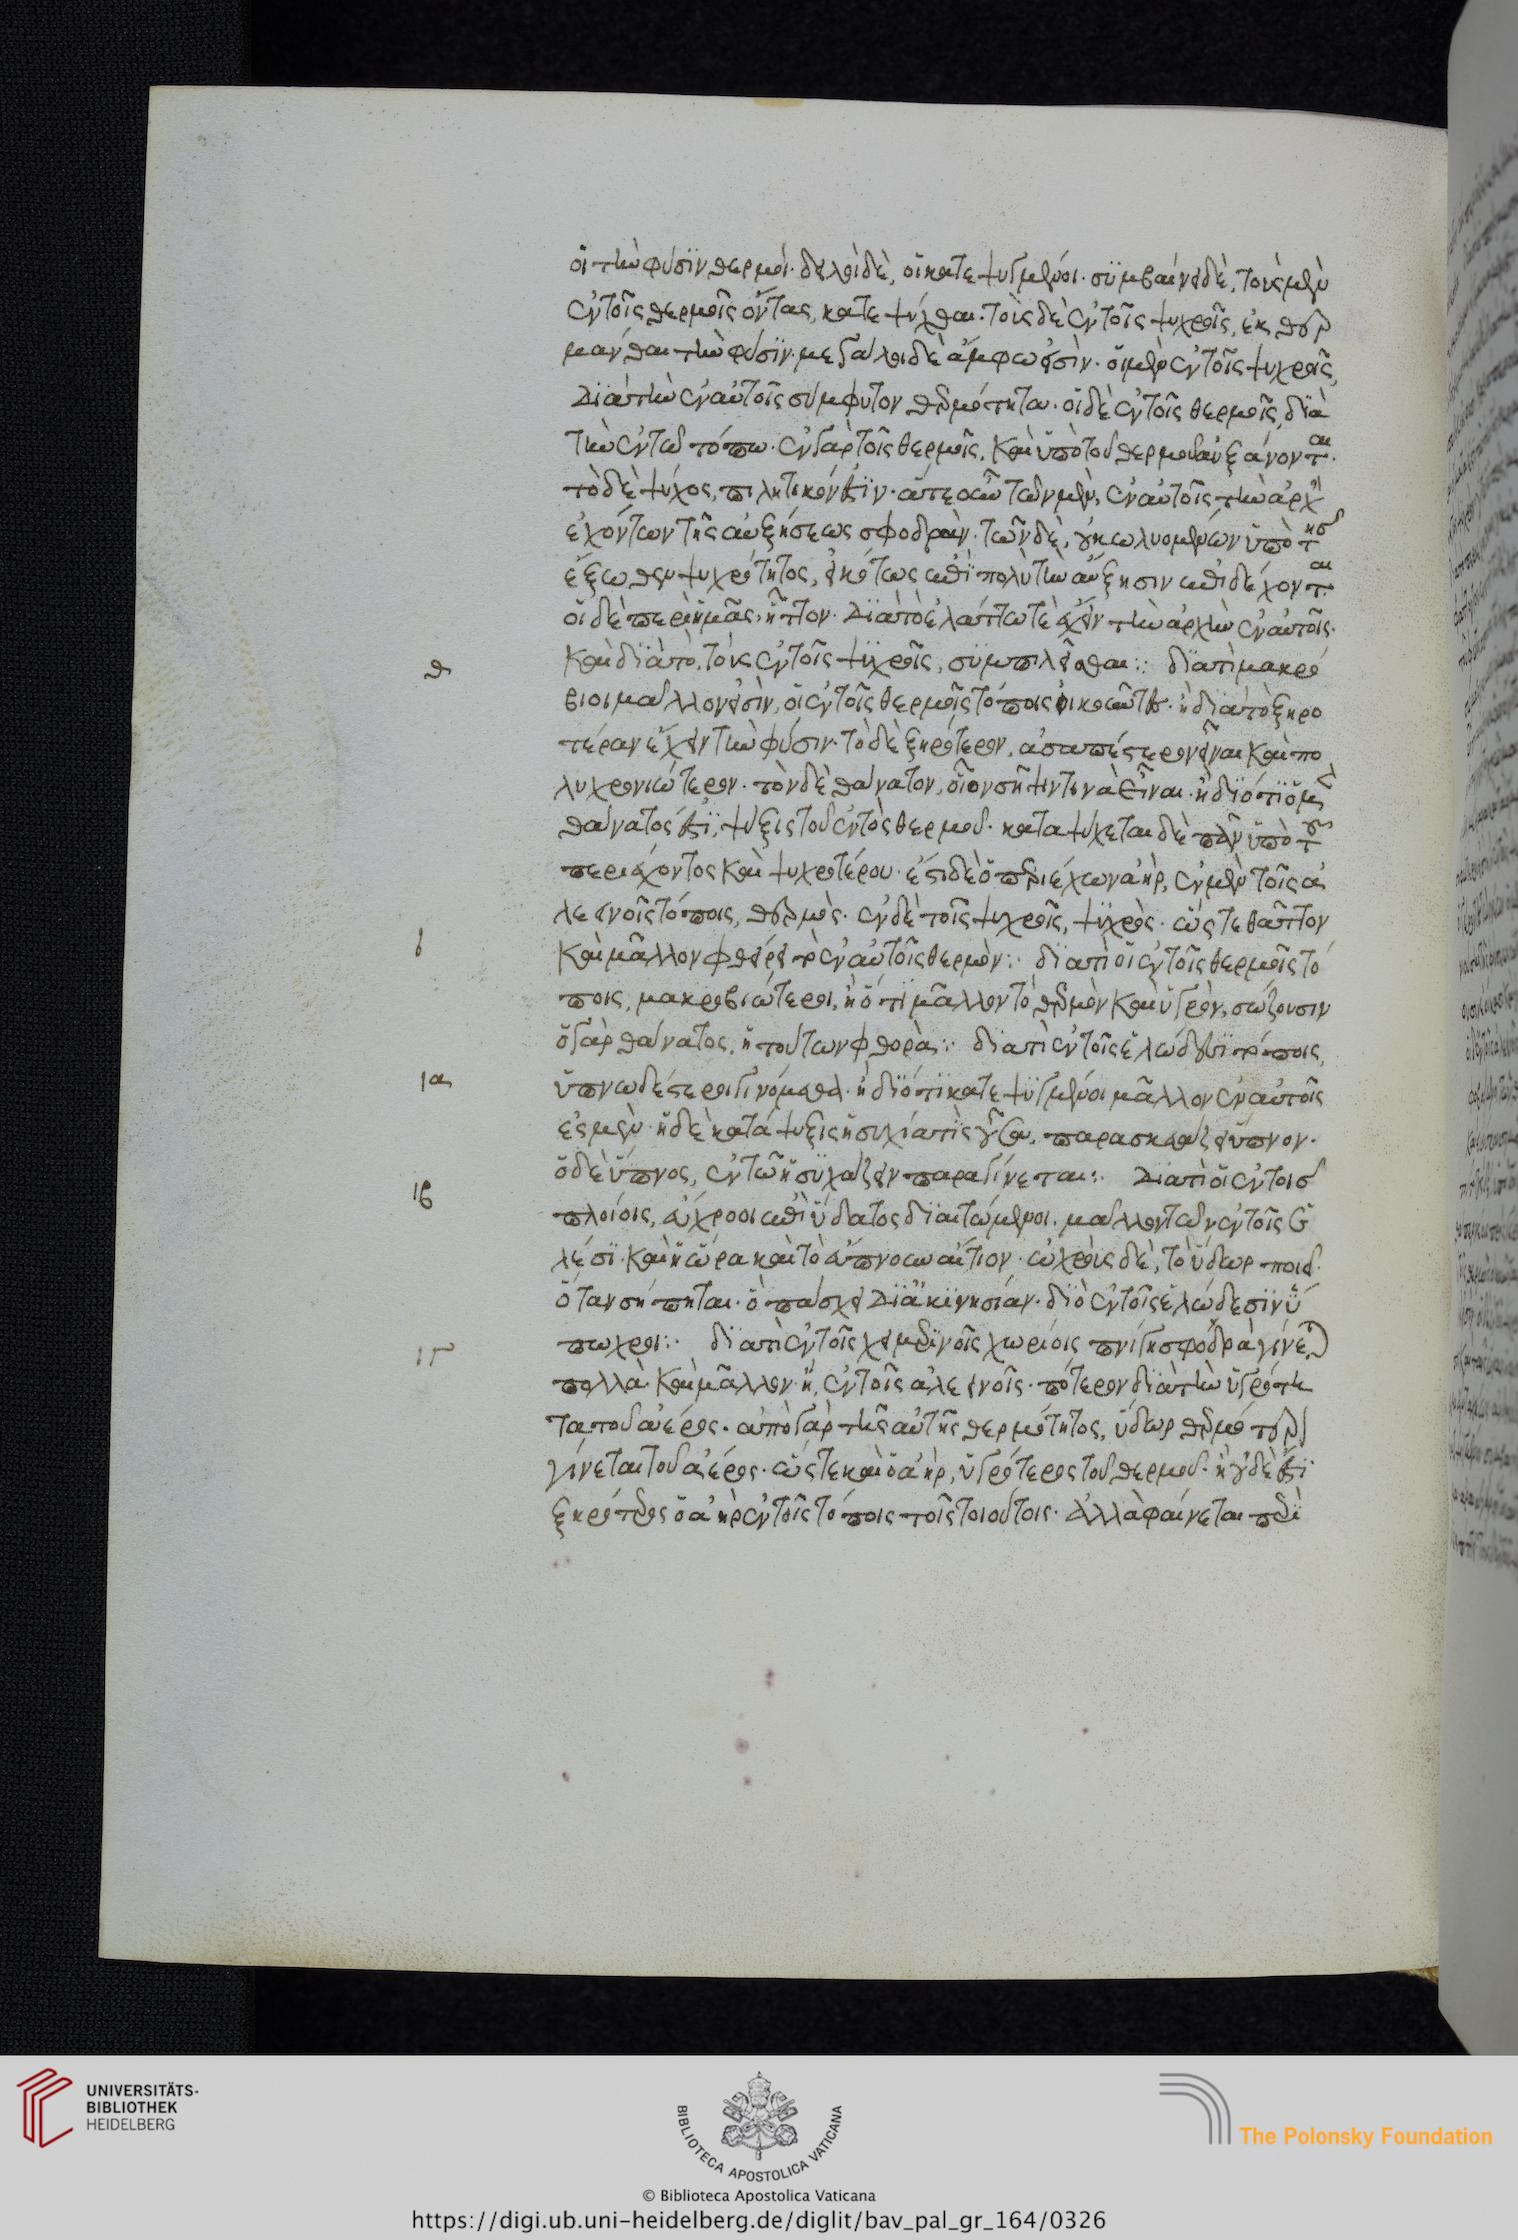 οἱ τὴν φύσιν θερμοί· δειλοὶ δὲ, οἱ κατεψυγμένοι· συμβαίνει δὲ, τοὺς μὲν
ἐν τοῖς θερμοῖς ὄντας, κατεψύχθαι· τοὺς δὲ ἐν τοῖς ψυχροῖς, ἐκθερ
μάνθαι τὴν φύσιν· μεγάλοι δὲ ἄμφω εἰσὶν· οἱ μὲν ἐν τοῖς ψυχροῖς,
διὰ τὴν ἐν αὐτοῖς σύμφυτον θερμότητα· οἱ δὲ ἐν τοῖς θερμοῖς, διὰ
τὴν ἐν τῶ τόπω· ἐν γὰρ τοῖς θερμοῖς, καὶ ὑπὸ τοῦ θερμοῦ αὐξάνονται·
τὸ δὲ ψύχος, πιλητικόν ἐστιν· ἅτε οὖν τῶν μὲν, ἐν αὐτοῖς τὴν ἀρχὴν
ἐχόντων τῆς αὐξήσεως σφοδρὰν· τῶν δὲ, οὐ κωλυομένων ὑπὸ τῆς
ἔξωθεν ψυχρότητος, εἰκότως ἐπὶ πολὺ τὴν αὔξησιν ἐπιδέχονται·
οἱ δὲ περὶ ἡμᾶς, ἧττον· διὰ τὸ ἐλάττω τὲ ἔχειν τὴν ἀρχὴν ἐν αὐτοῖς·
θ καὶ διὰ τὸ, τοὺς ἐν τοῖς ψυχροῖς, συμπιλεῖσθαι:· διατὶ μακρό
βιοι μᾶλλον εἰσὶν, οἱ ἐν τοῖς θερμοῖς τόποις οἰκοῦντες· ἢ διὰ τὸ ξηρο
τέραν ἔχειν τὴν φύσιν· τὸ δὲ ξηρότερον, ἀσηπτότερον εἶναι καὶ πο
λυχρονιώτερον· τὸν δὲ θάνατον, οἷον σῆψιν τινὰ εἶναι· ἢ διότι ὁ μὲν
θάνατός ἐστι, ψύξις τοῦ ἐντὸς θερμοῦ· καταψύχεται δὲ πᾶν ὑπὸ τοῦ
περιέχοντος καὶ ψυχροτέρου· ἔστι δὲ ὁ περιέχων ἀὴρ, ἐν μὲν τοῖς ἀ
λεεινοῖς τόποις, θερμὸς· ἐν δὲ τοῖς ψυχροῖς, ψυχρὸς· ὥστε θᾶττον
ι καὶ μᾶλλον φθείρει τὸ ἐν αὐτοῖς θερμὸν:· διατὶ οἱ ἐν τοῖς θερμοῖς τό
ποις, μακροβιώτεροι, ἢ ὅτι μᾶλλον τὸ θερμὸν καὶ ὑγρὸν, σώζουσιν
ὁ γὰρ θάνατος, ἡ τούτων φθορὰ:· διατὶ ἐν τοῖς ἑλώδεσι τόποις,
ια ὑπνωδέστεροι γινόμεθα· ἢ διότι κατεψυγμένοι μᾶλλον ἐν αὐτοῖς
ἐσμὲν· ἡ δὲ κατάψυξις ἡσυχία τὶς οὖσα, παρασκευάζει ὕπνον·
ιβ ὁ δὲ ὕπνος, ἐν τῶ ἡσυχάζειν παραγίνεται:· διατὶ οἱ ἐν τοῖς
πλοίοις, εὔχροοι ἐπὶ ὕδατος διαιτώμενοι, μᾶλλον τῶν ἐν τοῖς ἕ
λεσι· καὶ ἡ ὥρα καὶ τὸ εὔπνοον αἴτιον· ὠχροὺς δὲ, τὸ ὕδωρ ποιεῖ·
ὅταν σήπηται· ὃ πάσχει δι' ἀκινησίαν· διὸ ἐν τοῖς ἑλώδεσιν ὕ
ιγ πωχροι:· διατὶ ἐν τοῖς χειμερινοῖς χωρίοις πνίγη σφοδρὰ γίνεται
πολλὰ καὶ μᾶλλον ἢ, ἐν τοῖς ἀλεεινοῖς· πότερον διὰ τὴν ὑγρότη
τα τοῦ ἀέρος· ἀπὸ γὰρ τῆς αὐτῆς θερμότητος, ὕδωρ θερμότερον
γίνεται τοῦ ἀέρος· ὥστε καὶ ὁ ἀὴρ, ὑγρότερος τοῦ θερμοῦ· ἢ οὐδὲ ἐστὶ
ξηρότερος ὁ ἀὴρ ἐν τοῖς τόποις τοῖς τοιούτοις· ἀλλὰ φαίνεται περὶ
UNIVERSITÄTS-
BIBLIOTHEK
HEIDELBERG
BIBLIOTECA APOSTOLICA VATICANA
The Polonsky Foundation
© Biblioteca Apostolica Vaticana
https://digi.ub.uni-heidelberg.de/diglit/bav_pal_gr_164/0326